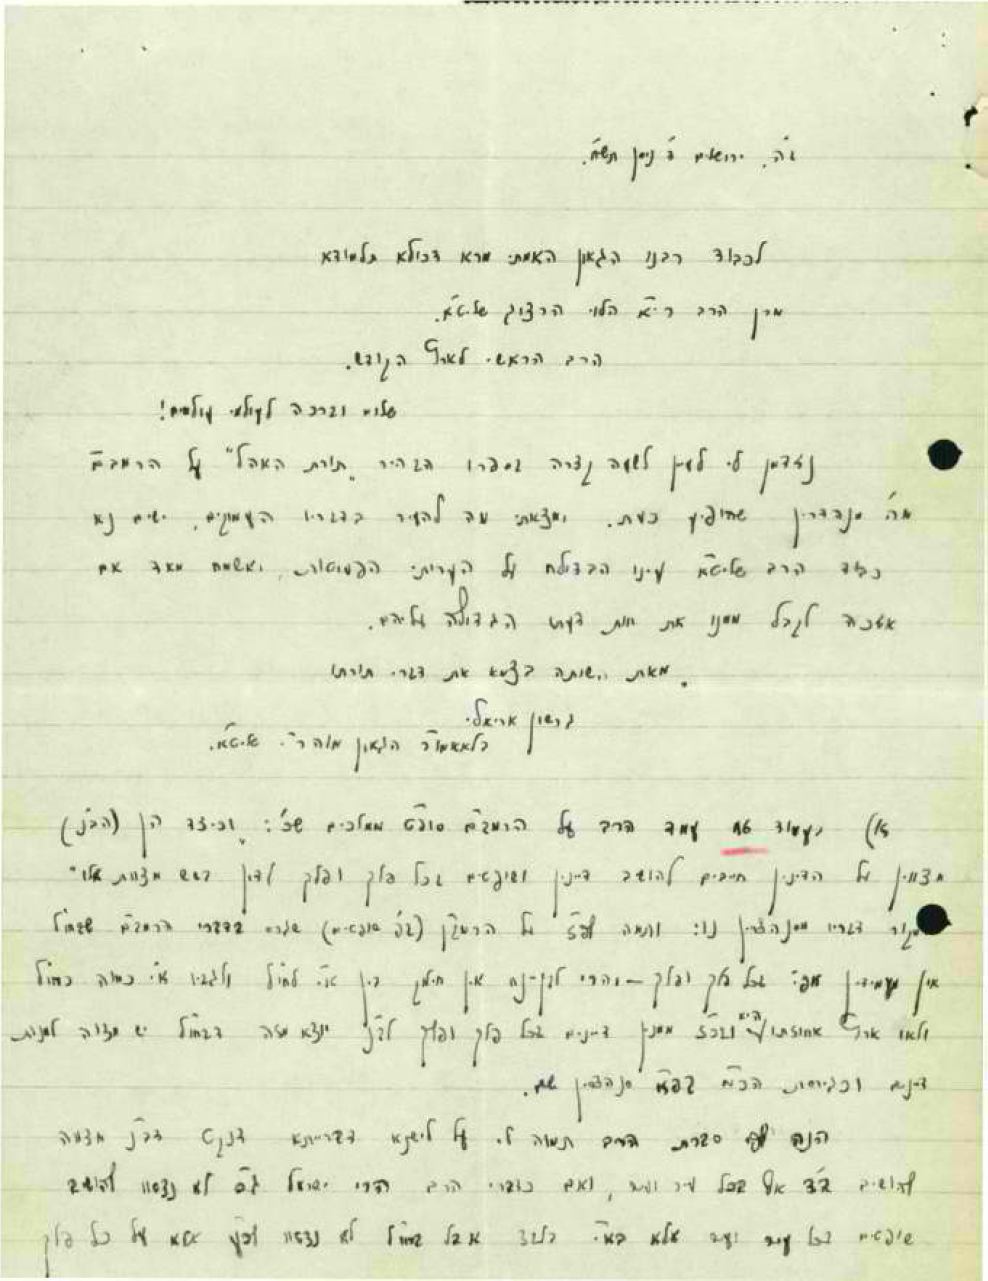 ב"ה. ירושלים ד' ניסן תש"ח.
לכבוד רבנו הגאון האמתי מרא דכולא תלמודא
מרן הרב ר' י"א הלוי הרצוג שליט"א.
הרב הראשי לארץ הקודש.
שלום וברכה לעולמי עולמים!
נזדמן לי לעיין לשעה קצרה בספרו הבהיר "תורת האהל" על הרמב"ם
ה' סנהדרין שהופיע כעת. ומצאתי מה להעיר בדבריו העמוקים. ישים נא
כבוד הרב שליט"א עינו הבדולח על הערותי הפעוטות, ואשמח מאד אם
אזכה לקבל ממנו את חות דעתו הגדולה עליהם.
מאת השותה בצמא את דברי תורתו
גרשון אריאלי
בלאאמו"ר הגאון מוהר"י שליט"א.
א) בעמוד עמד הרב על הרמב"ם סופ"ט ממלכים שכ': "וכיצד הן (הב"נ)
מצווין על הדינין חייבים להושיב דיינין ושופטים בכל פלך ופלך לדון בשש מצוות אלו"
מקור דבריו מסנהדרין נו: ותמה עפ"ז על הרמב"ן (פ' שופטים) שגרס בדברי הרמב"ם שבחו"ל
אין מעמידין אפי' בכל פלך ופלך – והרי לבן-נח אין חילוק בין א"י לחו"ל ולגביו א"י כמוה כחו"ל
ולאו ארץ אחוזתו היא ובכ"ז ממנין דיינים בכל פלך ופלך לב"נ יוצא מזה דבחו"ל יש מצוה למנות
דינים וכגירסת הכ"מ בפ"א סנהדרין שם.
הנה לפי סברת הרב תמוה לי על לישנא דברייתא דנקט דב"נ מצווה
להושיב ב"ד אף בכל עיר ועיר, ואם כדברי הרב הרי ישראל ג"כ לא נצטוו להושיב
שופטים בכל עיר ועיר אלא בא"י בלבד אבל בחו"ל לא נצטוו אלא על כל פלך